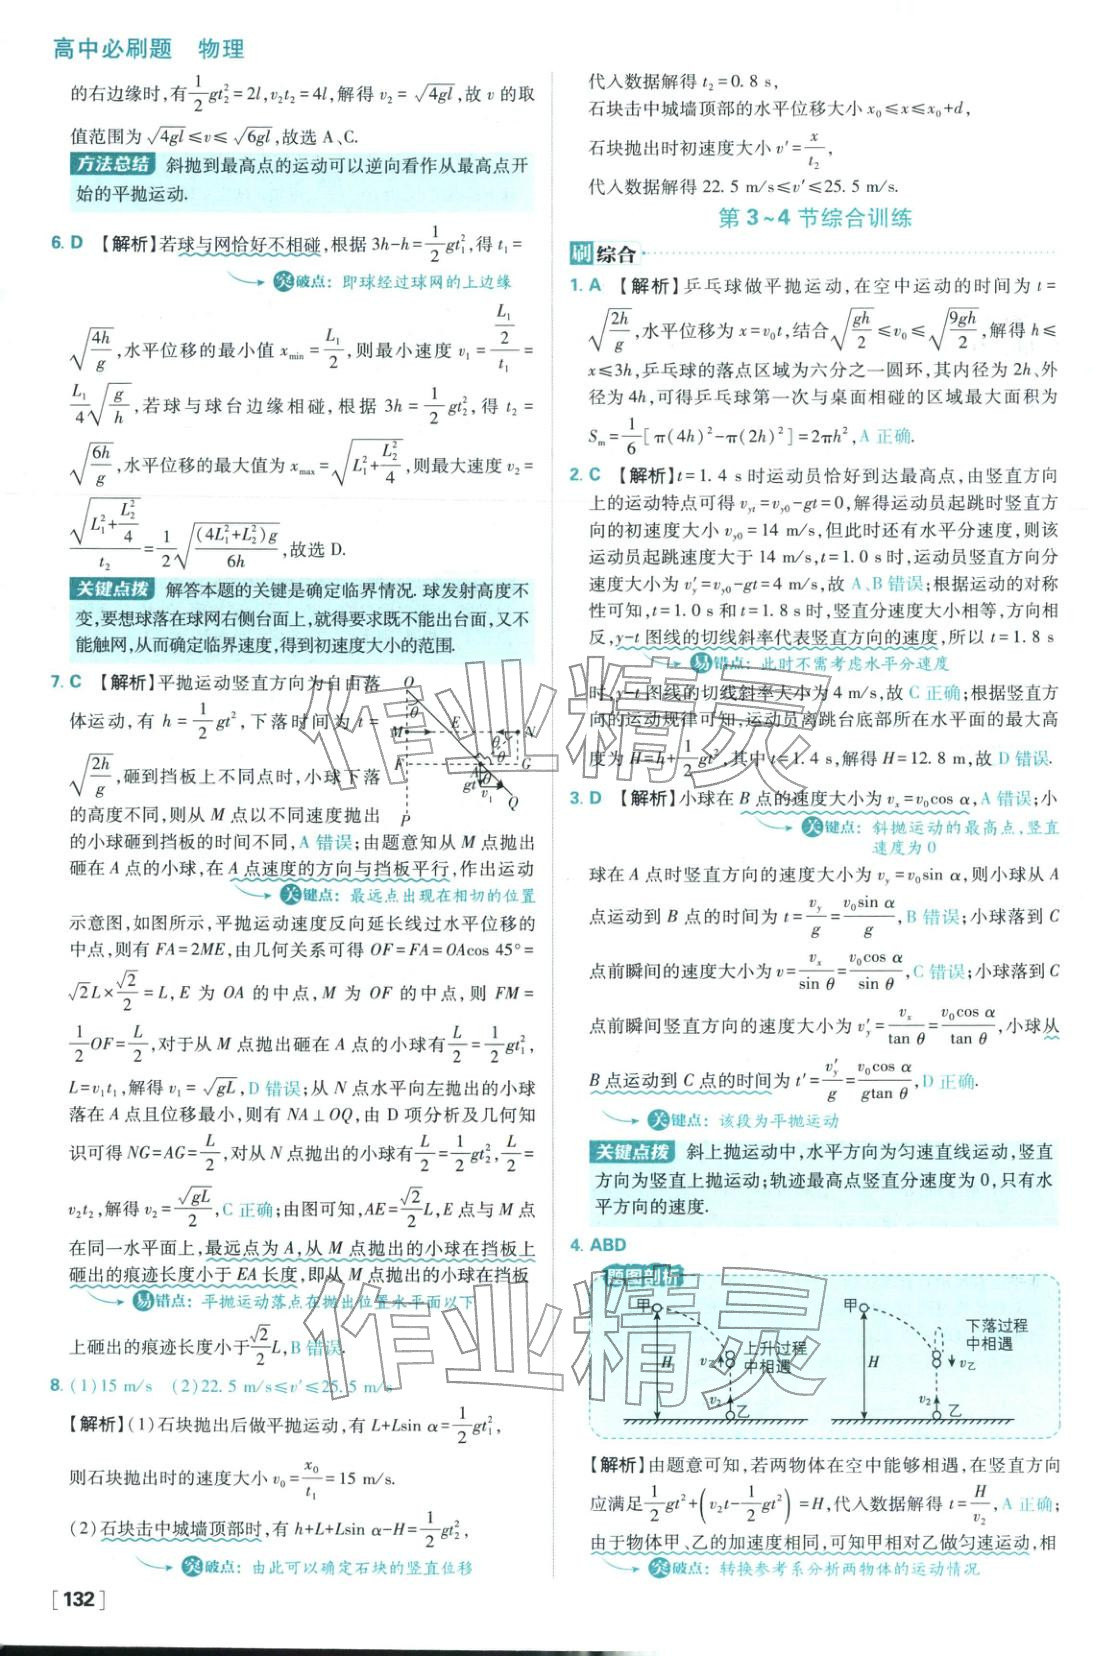 高中必刷题 物理
的右边缘时,有1/2gt₂²=2l,v₂t₂=4l,解得v₂=√(4gl),故v的取
值范围为√(4gl)≤v≤√(6gl),故选A、C.
方法总结 斜抛到最高点的运动可以逆向看作从最高点开
始的平抛运动.
6. D 【解析】若球与网恰好不相碰,根据3h-h=1/2gt₁²,得t₁=
突破点：即球经过球网的上边缘
√(4h/g),水平位移的最小值x_min=L₁/2,则最小速度v₁=(L₁/2)/t₁=
L₁/4√(g/h),若球与球台边缘相碰,根据3h=1/2gt₂²,得t₂=
√(6h/g),水平位移的最大值为x_max=√(L₁²+L₂²/4),则最大速度v₂=
√(L₁²+L₂²/4)/t₂=1/2√((4L₁²+L₂²)g/6h),故选D.
关键点拨 解答本题的关键是确定临界情况.球发射高度不
变,要想球落在球网右侧台面上,就得要求既不能出台面,又不
能触网,从而确定临界速度,得到初速度大小的范围.
7. C 【解析】平抛运动竖直方向为自由落
体运动,有h=1/2gt²,下落时间为t=
√(2h/g),砸到挡板上不同点时,小球下落
的高度不同,则从M点以不同速度抛出
O
θ
M
E
N
F
A
G
θ
θ
gt
θ
v₁
P
Q
的小球砸到挡板的时间不同,A错误;由题意知从M点抛出
砸在A点的小球,在A点速度的方向与挡板平行,作出运动
关键点：最远点出现在相切的位置
示意图,如图所示,平抛运动速度反向延长线过水平位移的
中点,则有FA=2ME,由几何关系可得OF=FA=OAcos 45°=
√2L×√2/2=L,E为OA的中点,M为OF的中点,则FM=
1/2OF=L/2,对于从M点抛出砸在A点的小球有L/2=1/2gt₁²,
L=v₁t₁,解得v₁=√(gL),D错误;从N点水平向左抛出的小球
落在A点且位移最小,则有NA⊥OQ,由D项分析及几何知
识可得NG=AG=L/2,对从N点抛出的小球有L/2=1/2gt₂²,L/2=
v₂t₂,解得v₂=√(gL)/2,C正确;由图可知,AE=√2/2L,E点与M点
在同一水平面上,最远点为A,从M点抛出的小球在挡板上
砸出的痕迹长度小于EA长度,即从M点抛出的小球在挡板
易错点：平抛运动落点在抛出位置水平面以下
上砸出的痕迹长度小于√2/2L,B错误.
8. (1)15 m/s (2)22.5 m/s≤v′≤25.5 m/s
【解析】(1)石块抛出后做平抛运动,有L+Lsin α=1/2gt₁²,
则石块抛出时的速度大小v₀=x₀/t₁=15 m/s.
(2)石块击中城墙顶部时,有h+L+Lsin α-H=1/2gt₂²,
突破点：由此可以确定石块的竖直位移
[132]
代入数据解得t₂=0.8 s,
石块击中城墙顶部的水平位移大小x₀≤x≤x₀+d,
石块抛出时初速度大小v′=x/t₂,
代入数据解得22.5 m/s≤v′≤25.5 m/s.
第3~4节综合训练
刷综合
1. A 【解析】乒乓球做平抛运动,在空中运动的时间为t=
√(2h/g),水平位移为x=v₀t,结合√(gh/2)≤v₀≤√(9gh/2),解得h≤
x≤3h,乒乓球的落点区域为六分之一圆环,其内径为2h、外
径为4h,可得乒乓球第一次与桌面相碰的区域最大面积为
Sₘ=1/6[π(4h)²-π(2h)²]=2πh²,A正确.
2. C 【解析】t=1.4 s时运动员恰好到达最高点,由竖直方向
上的运动特点可得v_yt=v_y0-gt=0,解得运动员起跳时竖直方
向的初速度大小v_y0=14 m/s,但此时还有水平分速度,则该
运动员起跳速度大于14 m/s,t=1.0 s时,运动员竖直方向分
速度大小为v′_y=v_y0-gt=4 m/s,故A、B错误;根据运动的对称
性可知,t=1.0 s和t=1.8 s时,竖直分速度大小相等,方向相
反,y-t图线的切线斜率代表竖直方向的速度,所以t=1.8 s
易错点：此时不需考虑水平分速度
时,y-t图线的切线斜率大小为4 m/s,故C正确;根据竖直方
向的运动规律可知,运动员离跳台底部所在水平面的最大高
度为H=h+1/2gt²,其中t=1.4 s,解得H=12.8 m,故D错误.
3. D 【解析】小球在B点的速度大小为vₓ=v₀cos α,A错误;小
关键点：斜抛运动的最高点,竖直
速度为0
球在A点时竖直方向的速度大小为v_y=v₀sin α,则小球从A
点运动到B点的时间为t=v_y/g=v₀sin α/g,B错误;小球落到C
点前瞬间的速度大小为v=vₓ/sin θ=v₀cos α/sin θ,C错误;小球落到C
点前瞬间竖直方向的速度大小为v′_y=vₓ/tan θ=v₀cos α/tan θ,小球从
B点运动到C点的时间为t′=v′_y/g=v₀cos α/gtan θ,D正确.
关键点：该段为平抛运动
关键点拨 斜上抛运动中,水平方向为匀速直线运动,竖直
方向为竖直上抛运动;轨迹最高点竖直分速度为0,只有水
平方向的速度.
4. ABD
题图剖析
甲
H
v乙
上升过程
中相遇
v₂
乙
甲
H
下落过程
中相遇
v乙
v₂
乙
【解析】由题意可知,若两物体在空中能够相遇,在竖直方向
应满足1/2gt²+(v₂t-1/2gt²)=H,代入数据解得t=H/v₂,A正确;
由于物体甲、乙的加速度相同,可知甲相对乙做匀速运动,相
突破点：转换参考系分析两物体的运动情况
作业精灵
作业精灵